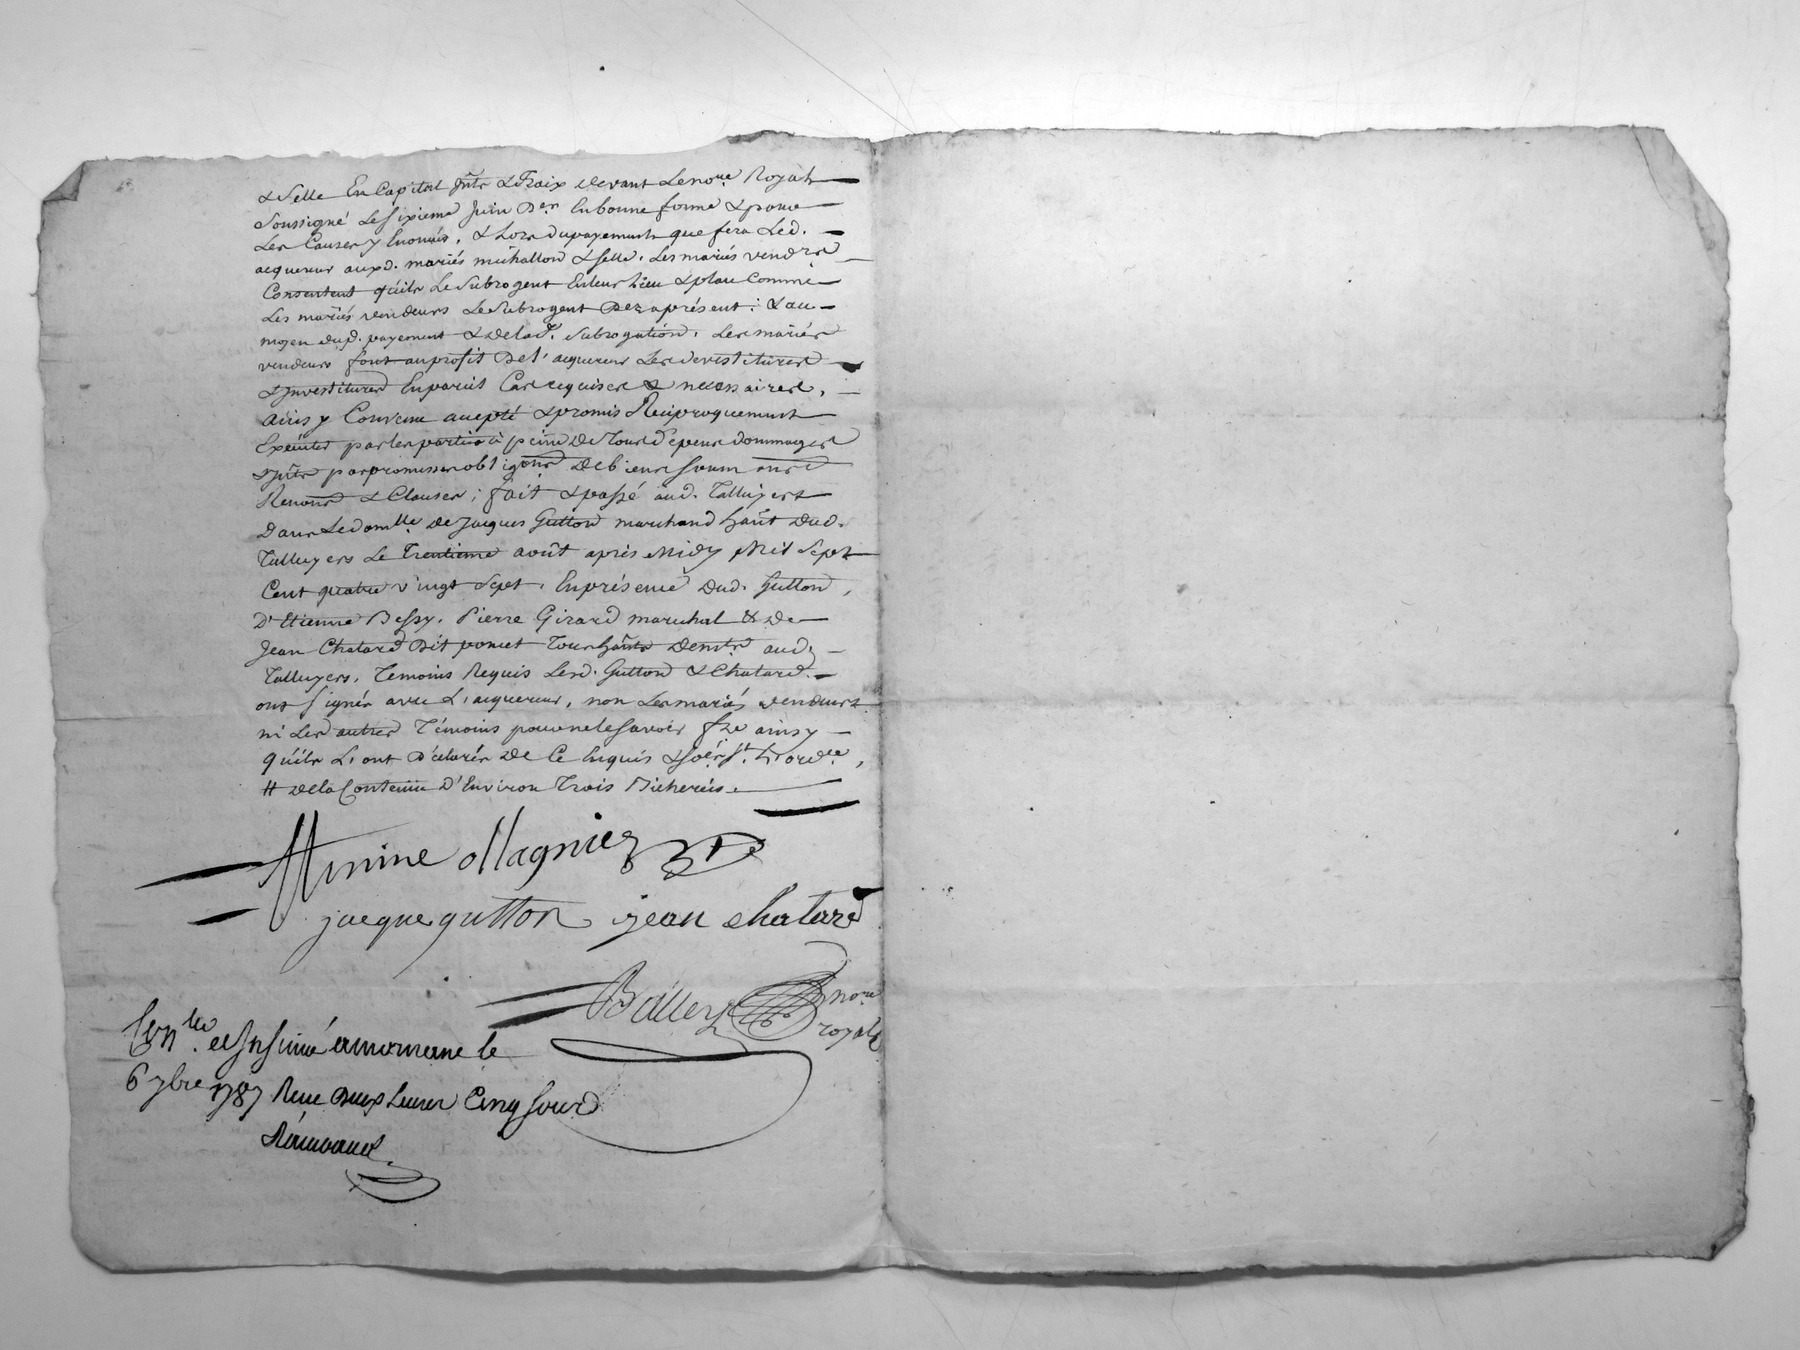 & Selle En Capital Jnts & Fraix devant Le nore Royal
Soussigné Le Sixieme Juin Der En bonne forme & pour
Les Causes y Enoncés, & Lors du payement que fera Led.
acquereur auxd. mariés michallon & Selle, Les mariés vendrs
Consentent qu'ils Le Subrogent En leur Lieu & place Comme
Les mariés vendeurs Le Subrogent Dez aprésent : & au
moyen dud. payement & de lad. Subrogation, Les mariés
vendeurs font au profit De l'acquereur Les devestitures
& Jnvestitures En pareil Cas requises & necessaires,
ainsy Convenu accepté & promis Reciproquement
Executer par les parties à peine De Tous Depens dommages
& Jnts par promesses obligons De biens soumons
Renons & Clauses ; fait & passé aud. Talluyers
Dans Le domlle de Jacques Gutton marchand hañt Dud.
Talluyers Le Trentieme août après Midy Mil Sept
Cent quatre vingt Sept, En présence Dud. Gutton,
D'Etienne Bessy, Pierre Girard marechal & De
Jean Chatard Dit poncet Tous hañts Demts aud.
Talluyers, Temoins Requis Lesd. Gutton & Chatard
ont Signés avec L'acquereur, non Les mariés vendeurs
ni Les autres Témoins pour ne le Savoir fre ainsy
qu'ils L'ont Déclarés De Ce Enquis & Soés St. L'ordce,
# De la Contenue D'Environ Trois Bicherées.
Magniez
jacque gutton jean chatard
nore
royal
Conlle et Jnsinué a mornanc le
6 7bre 1787 Reçu Deux Livres Cinq sours